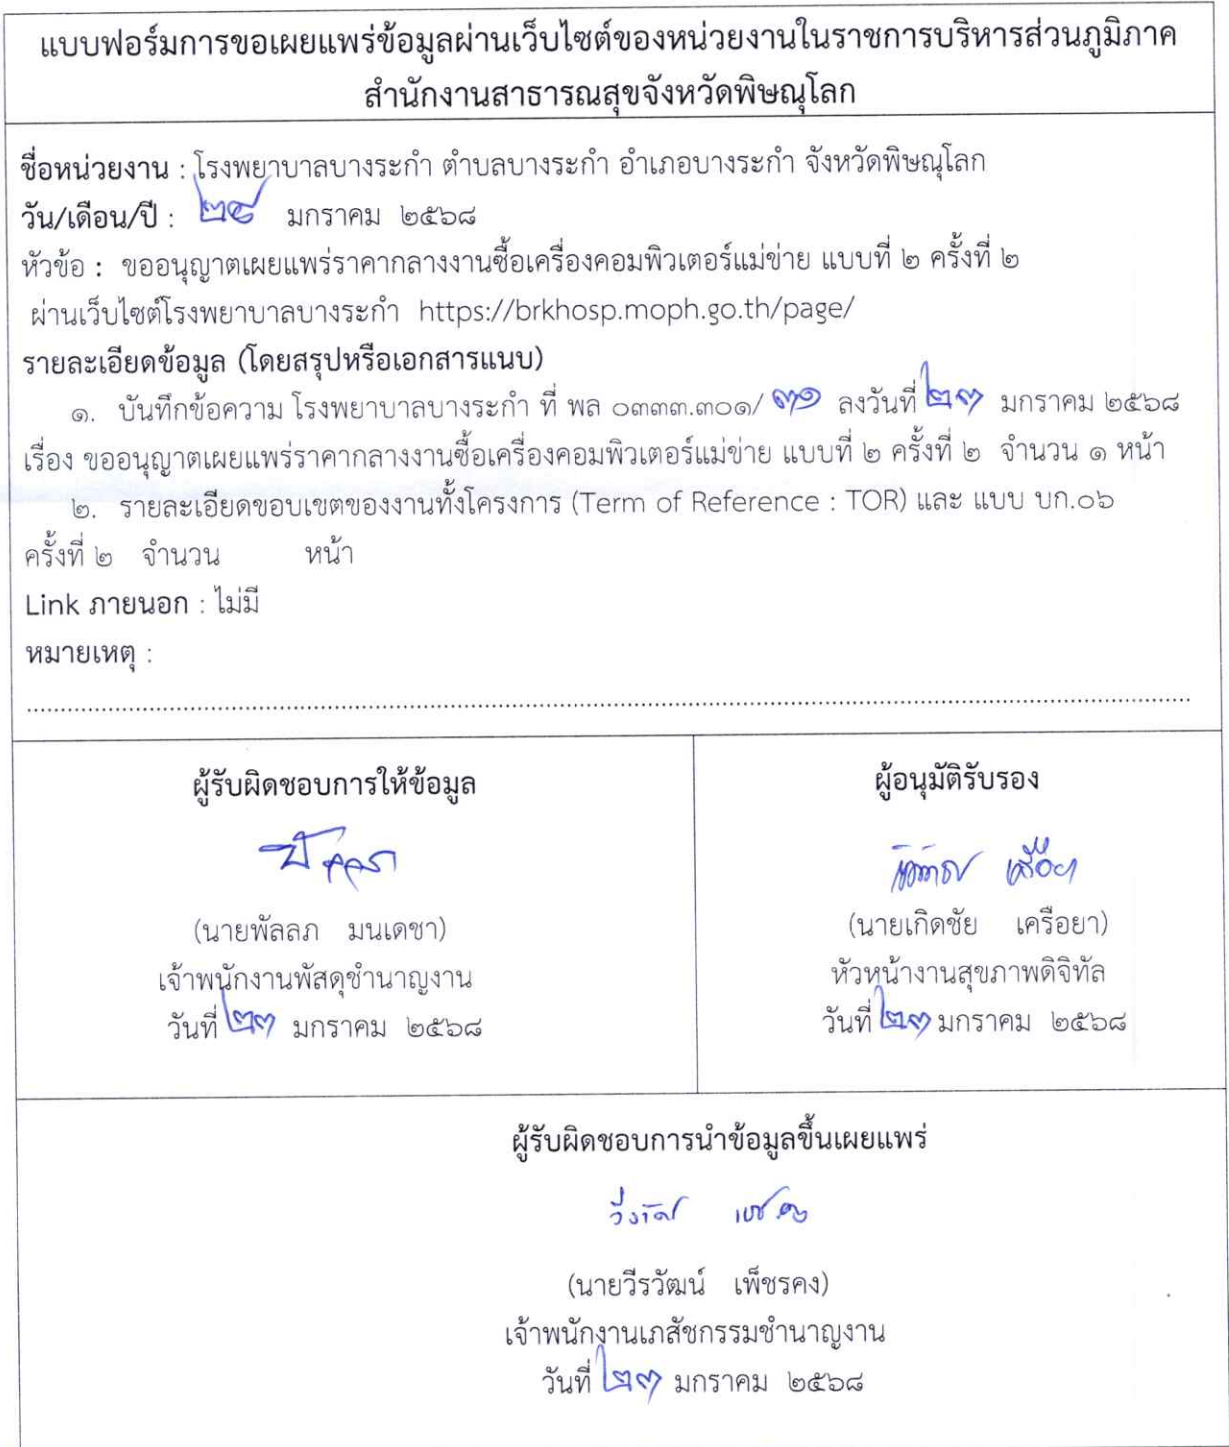 แบบฟอร์มการขอเผยแพร่ข้อมูลผ่านเว็บไซต์ของหน่วยงานในราชการบริหารส่วนภูมิภาค
สำนักงานสาธารณสุขจังหวัดพิษณุโลก
ชื่อหน่วยงาน : โรงพยาบาลบางระกำ ตำบลบางระกำ อำเภอบางระกำ จังหวัดพิษณุโลก
วัน/เดือน/ปี : ๒๔ มกราคม ๒๕๖๘
หัวข้อ : ขออนุญาตเผยแพร่ราคากลางงานซื้อเครื่องคอมพิวเตอร์แม่ข่าย แบบที่ ๒ ครั้งที่ ๒
ผ่านเว็บไซต์โรงพยาบาลบางระกำ https://brkhosp.moph.go.th/page/
รายละเอียดข้อมูล (โดยสรุปหรือเอกสารแนบ)
๑. บันทึกข้อความ โรงพยาบาลบางระกำ ที่ พล ๐๓๓๓.๓๐๑/ ๓๑ ลงวันที่ ๒๓ มกราคม ๒๕๖๘
เรื่อง ขออนุญาตเผยแพร่ราคากลางงานซื้อเครื่องคอมพิวเตอร์แม่ข่าย แบบที่ ๒ ครั้งที่ ๒ จำนวน ๑ หน้า
๒. รายละเอียดขอบเขตของงานทั้งโครงการ (Term of Reference : TOR) และ แบบ บก.๐๖
ครั้งที่ ๒ จำนวน หน้า
Link ภายนอก : ไม่มี
หมายเหตุ :
ผู้รับผิดชอบการให้ข้อมูล
(นายพัลลภ มนเดชา)
เจ้าพนักงานพัสดุชำนาญงาน
วันที่ ๒๓ มกราคม ๒๕๖๘
ผู้อนุมัติรับรอง
(นายเกิดชัย เครือยา)
หัวหน้างานสุขภาพดิจิทัล
วันที่ ๒๓ มกราคม ๒๕๖๘
ผู้รับผิดชอบการนำข้อมูลขึ้นเผยแพร่
(นายวีรวัฒน์ เพ็ชรคง)
เจ้าพนักงานเภสัชกรรมชำนาญงาน
วันที่ ๒๓ มกราคม ๒๕๖๘